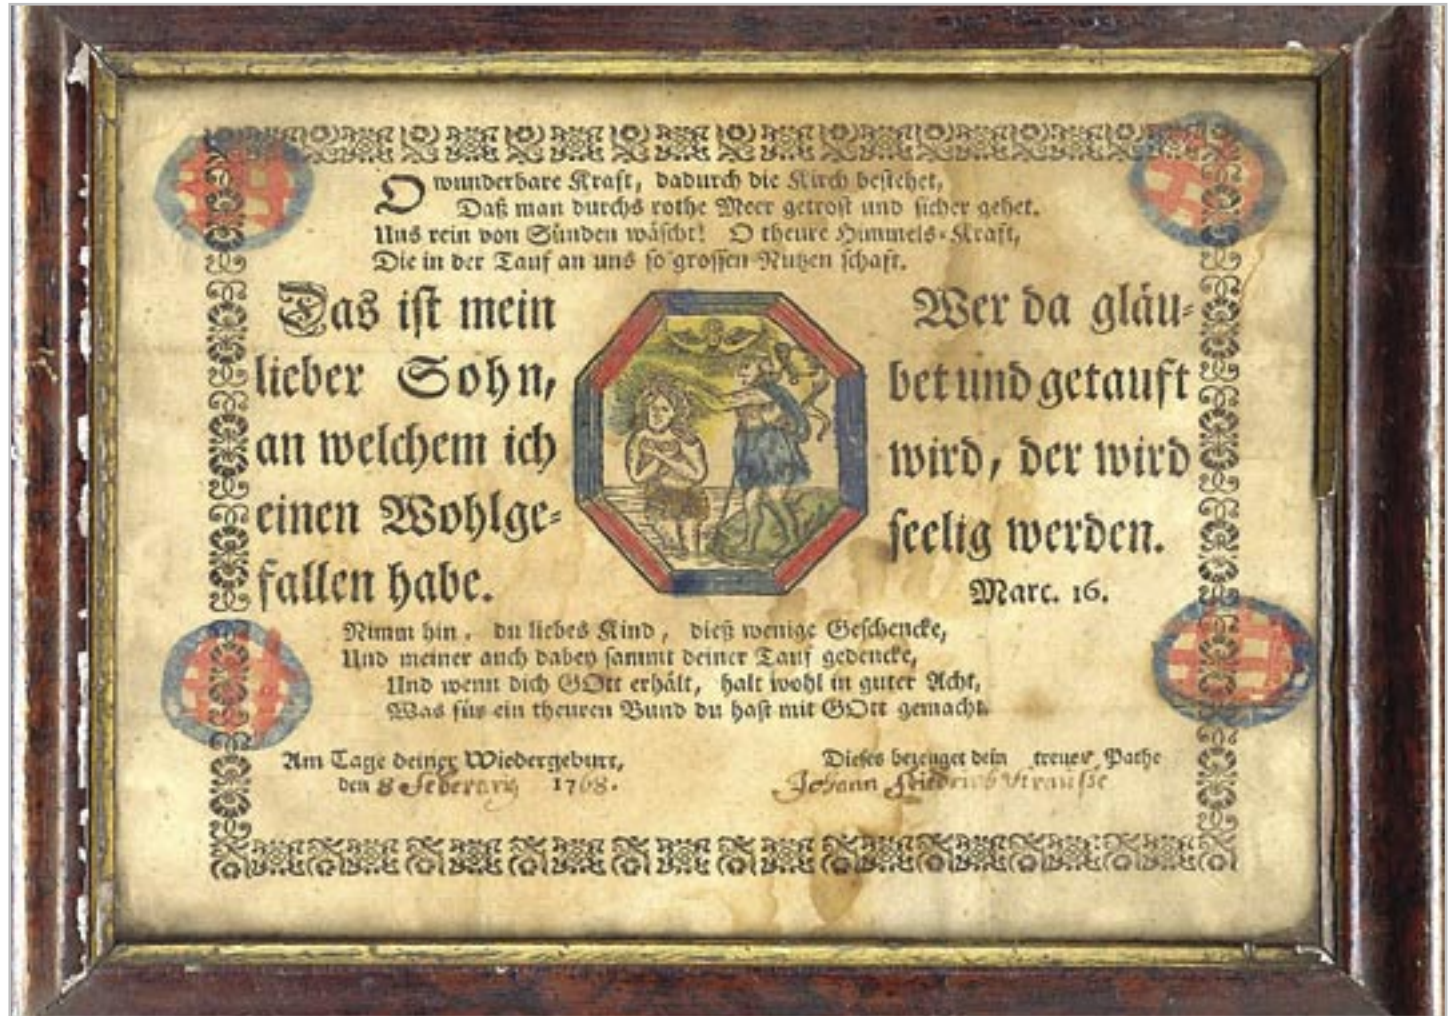 O wunderbare Kraft, dadurch die Kirch bestehet,
Daß man durchs rothe Meer getrost und sicher gehet.
Uns rein von Sünden wäscht! O theure Himmels-Kraft,
Die in der Tauf an uns so grossen Nutzen schaft.
Das ist mein
lieber Sohn,
an welchem ich
einen Wohlge-
fallen habe.
Wer da gläu-
bet und getauft
wird, der wird
seelig werden.
Marc. 16.
Nimm hin, du liebes Kind, dieß wenige Geschencke,
Und meiner auch dabey sammt deiner Tauf gedencke,
Und wenn dich GOtt erhält, halt wohl in guter Acht,
Was für ein theuren Bund du hast mit GOtt gemacht.
Am Tage deiner Wiedergeburt,
den 8 1768.
Dieses bezeuget dein treuer Pathe
Johann Friedrich Strauße